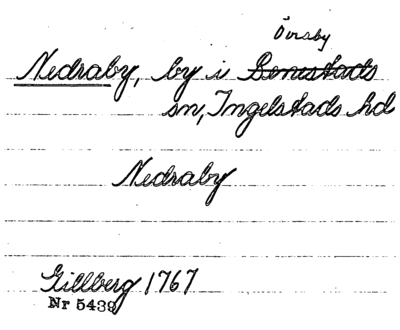 Övraby
Nedraby, by i Benestads
sn, Ingelstads hd
Nedraby
Gillberg 1767
Nr 5439